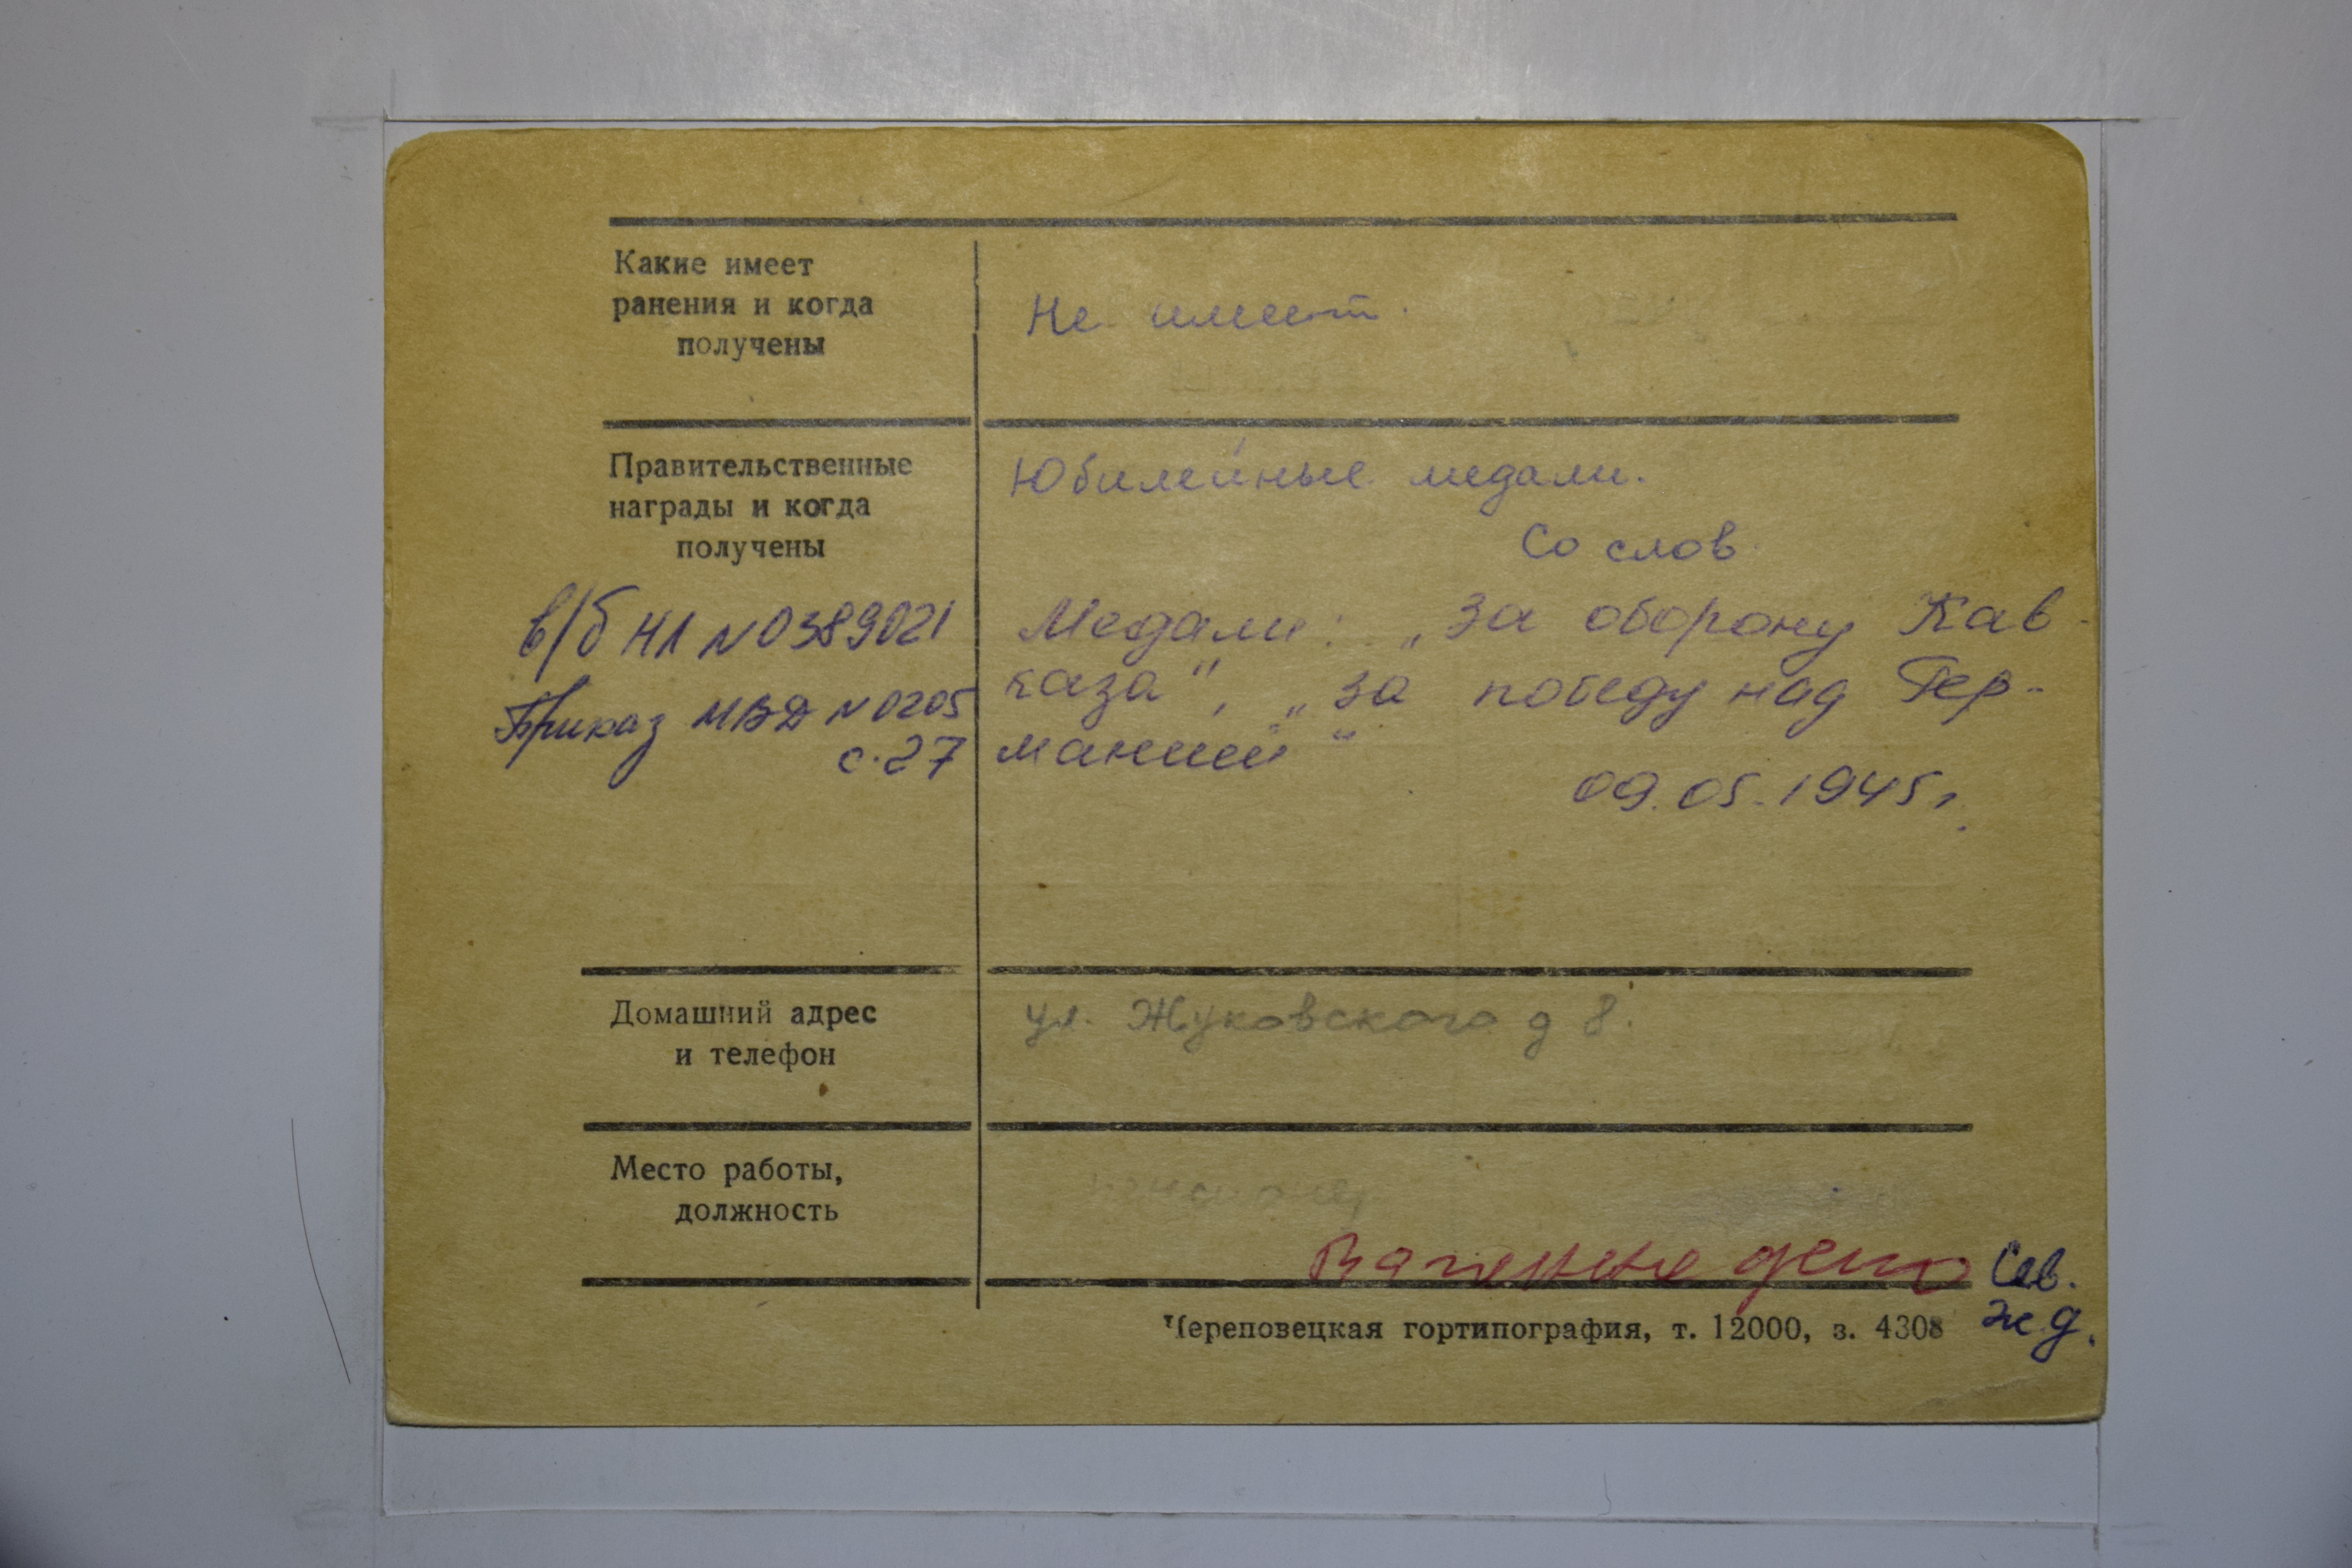 Какие имеет
ранения и когда
получены
Не имеет.
Правительственные
награды и когда
получены
Юбилейные медали.
Со слов
в/б НЛ N 0389021
Приказ МВД N 0205
с. 27
Медали: „За оборону Кав-
каза", „За победу над Гер-
манией"
09.05.1945 г.
Домашний адрес
и телефон
ул. Жуковского д 8.
Место работы,
должность
Вагонное депо
Сев.
ж.д.
Череповецкая гортипография, т. 12000, з. 4308